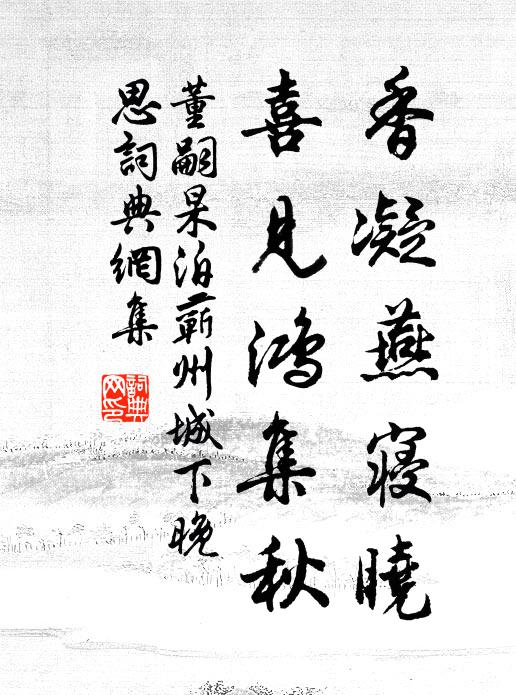 香凝燕寢曉
喜見鴻集秋
董嗣杲泊蘄州城下晚
思詞典網集
詞典網印